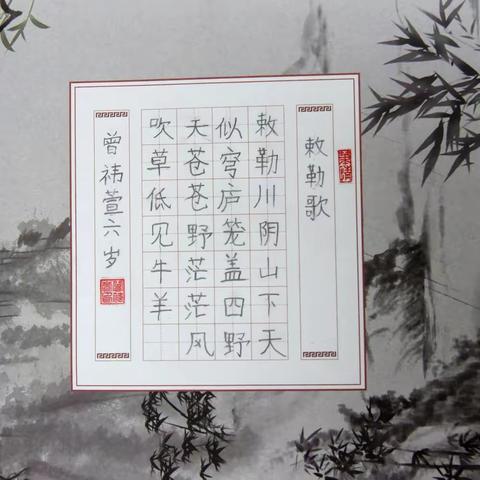 敕勒歌
敕勒川阴山下天
似穹庐笼盖四野
天苍苍野茫茫风
吹草低见牛羊
曾祎萱六岁